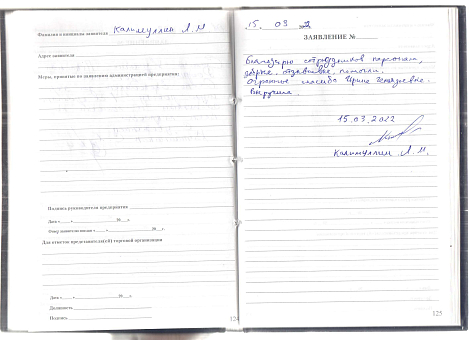 Фамилия и инициалы заявителя Калимуллин А.М
Адрес заявителя
Меры, принятые по заявлению администрацией предприятия:
Подпись руководителя предприятия
Дата « » 20 г.
Ответ заявителю послан « » 20 г.
Для отметок представителя(ей) торговой организации
Дата « » 20 г.
Должность
Подпись
124
15. 03
ЗАЯВЛЕНИЕ №
Благодарю сотрудников
добрые, отзывчивые,
Огромное спасибо Ирине
Выручила.
15.03.2012
Калимуллин А.М.
125